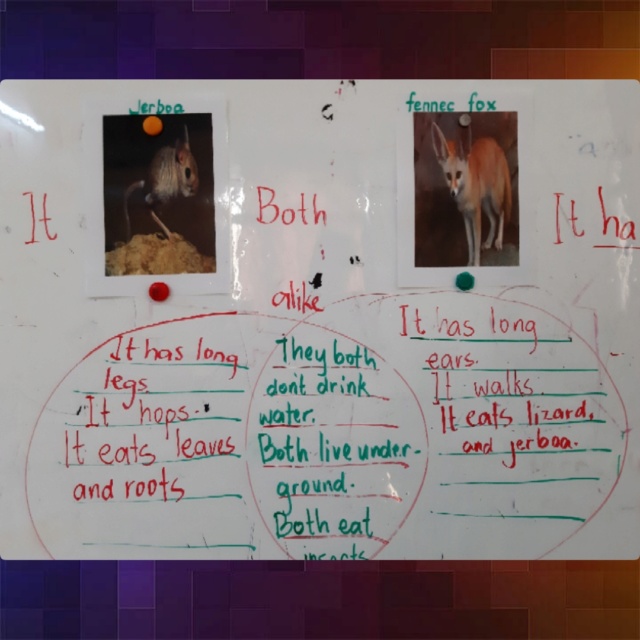 Jerboa
fennec fox
It
Both
It ha
alike
It has long
legs
It hops.
It eats leaves
and roots
They both
don't drink
water.
Both live under-
ground.
Both eat
insects
It has long
ears.
It walks
It eats lizard,
and jerboa.